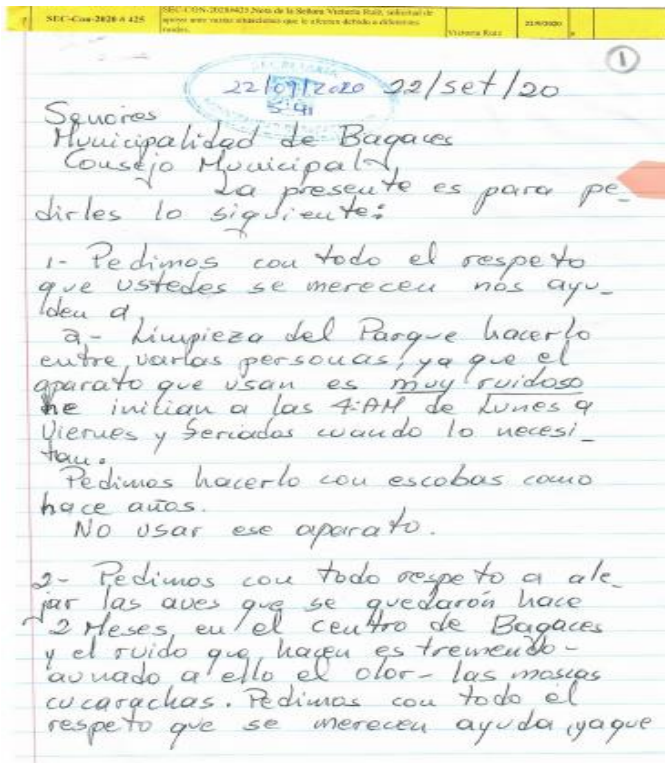 SEC-Con-2020 # 425
SEC-CON-2020#425 Nota de la Señora Victoria Ruiz, solicitud de
apoyo ante varias situaciones que le afectan debido a diferentes
ruidos.
Victoria Ruiz
22/9/2020
1
SECRETARIA
22/09/2020 22/set/20
Señores
Municipalidad de Bagaces
Consejo Municipal
La presente es para pe_
dirles lo siguiente:
1- Pedimos con todo el respeto
que ustedes se merecen nos ayu_
den a
a- Limpieza del Parque hacerlo
entre varias personas, ya que el
aparato que usan es muy ruidoso
he initian a las 4:AM de Lunes a
Viernes y feriados cuando lo necesi_
tan.
Pedimos hacerlo con escobas como
hace años.
No usar ese aparato.
2- Pedimos con todo respeto a ale_
jar las aves que se quedarón hace
2 Meses en el centro de Bagaces
y el ruido que hacen es tremendo-
aunado a ello el olor- las moscas
cucarachas. Pedimos con todo el
respeto que se merecen ayuda, ya que